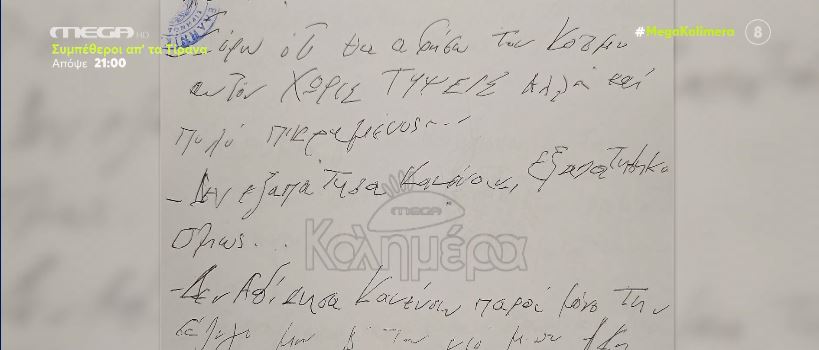 MEGA HD
Συμπέθεροι απ' τα Τίρανα
Απόψε 21:00
#MegaKalimera
8
ότι θα αφήσω τον Κόσμο
αυτόν ΧΩΡΙΣ ΤΥΨΕΙΣ Αλλά και
πολύ πικραμένος...
- Δεν εξαπάτησα Κανέναν, Εξαπατήθηκα
όμως...
MEGA
Καλημέρα
- Δεν Αδίκησα Κανέναν παρά μόνο Την
μου